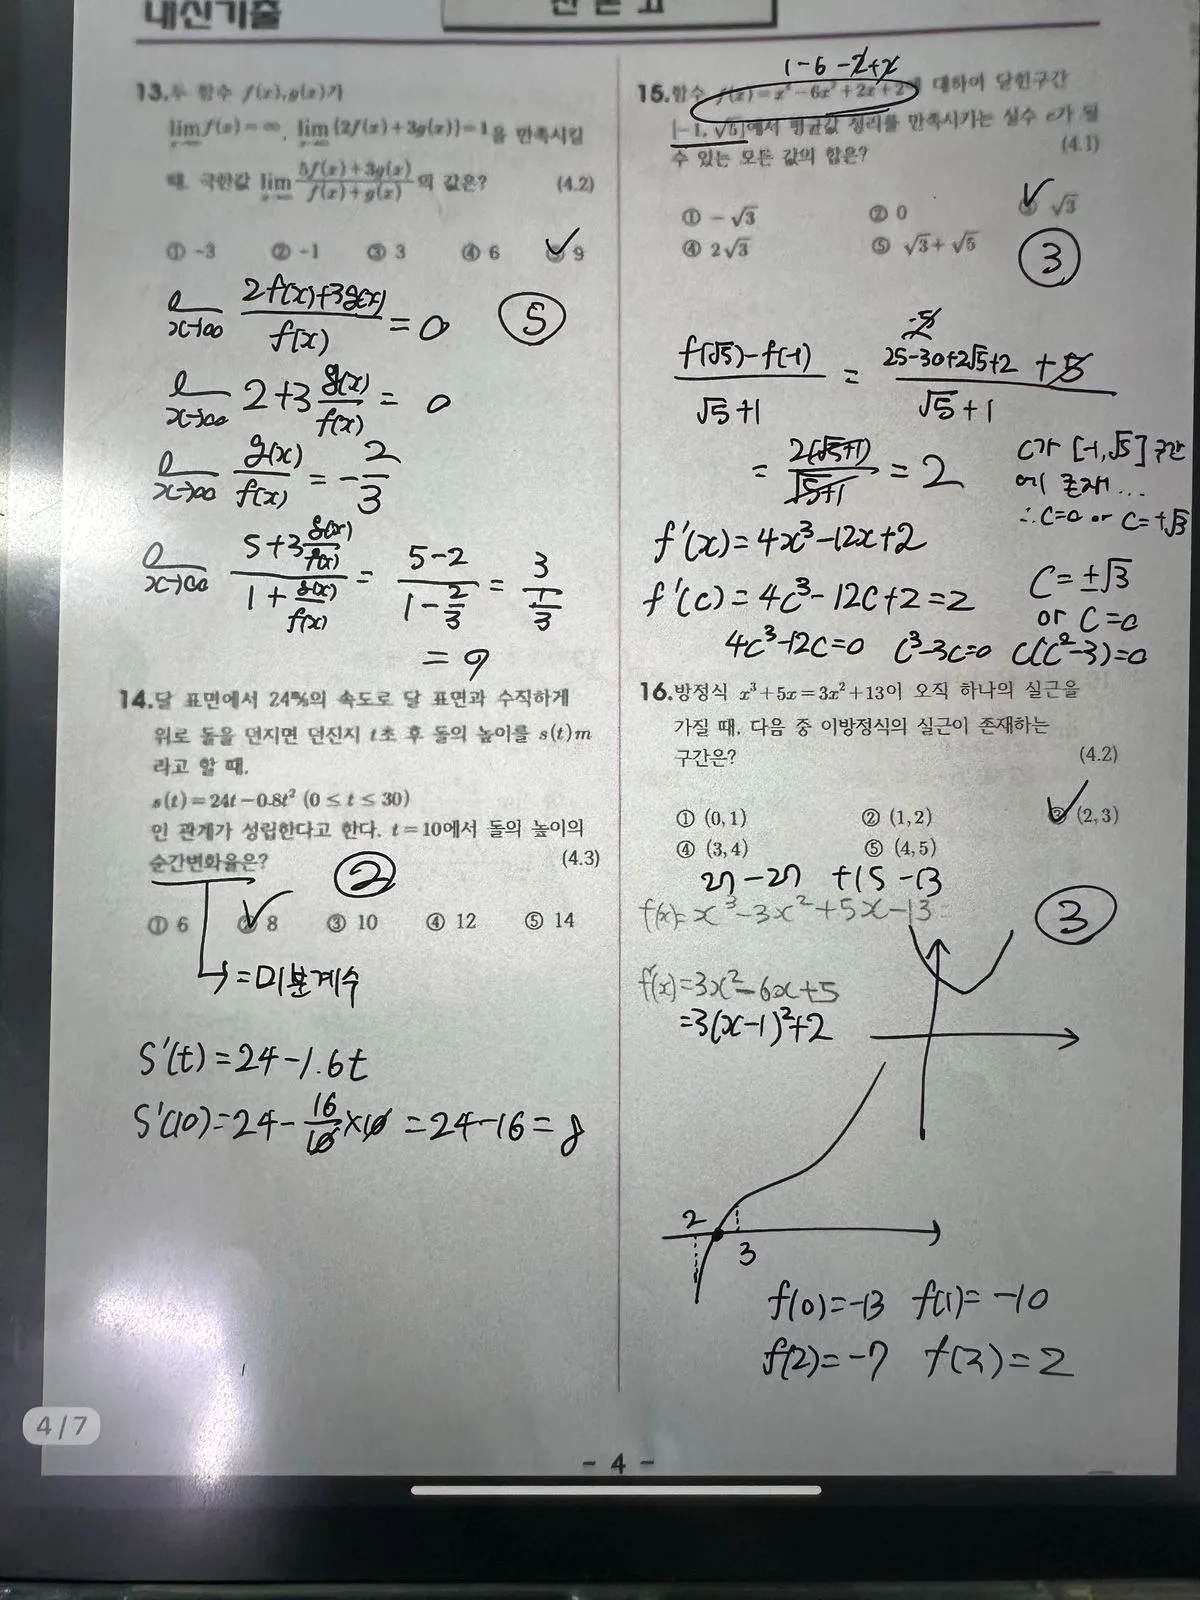 내신기출
13. 두 함수 f(x), g(x)가
lim f(x)=∞, lim {2f(x)+3g(x)}=1을 만족시킬
때, 극한값 lim (5f(x)+3g(x))/(f(x)+g(x)) 의 값은? (4.2)
① -3 ② -1 ③ 3 ④ 6 ✓ 9
x→∞ (2f(x)+3g(x))/f(x) = 0 ⑤
x→∞ 2+3 g(x)/f(x) = 0
x→∞ g(x)/f(x) = -2/3
x→∞ (5+3 g(x)/f(x))/(1+ g(x)/f(x)) = (5-2)/(1-2/3) = 3/(1/3)
= 9
14. 달 표면에서 24㎧의 속도로 달 표면과 수직하게
위로 돌을 던지면 던진지 t초 후 돌의 높이를 s(t)m
라고 할 때,
s(t)=24t-0.8t² (0≤t≤30)
인 관계가 성립한다고 한다. t=10에서 돌의 높이의
순간변화율은? (4.3)
②
① 6 ✓ 8 ③ 10 ④ 12 ⑤ 14
→ =미분계수
S'(t)=24-1.6t
S'(10)=24-16/10×10=24-16=8
1-6-2+2
15. 함수 f(x)=x⁴-6x²+2x+2에 대하여 닫힌구간
[-1, √5]에서 평균값 정리를 만족시키는 실수 c가 될
수 있는 모든 값의 합은? (4.1)
① -√3 ② 0 ✓ √3
④ 2√3 ⑤ √3+√5
③
-5
(f(√5)-f(-1))/(√5+1) = (25-30+2√5+2 +5)/(√5+1)
= 2(√5+1)/(√5+1) = 2
C가 [-1,√5] 구간
에 존재...
∴C=0 or C=+√3
f'(x)=4x³-12x+2
f'(c)=4c³-12c+2=2
C=±√3
or C=0
4c³-12c=0 c³-3c=0 c(c²-3)=0
16. 방정식 x³+5x=3x²+13이 오직 하나의 실근을
가질 때, 다음 중 이방정식의 실근이 존재하는
구간은? (4.2)
① (0,1) ② (1,2) ✓ (2,3)
④ (3,4) ⑤ (4,5)
27-27 +15-13
f(x)=x³-3x²+5x-13
③
f'(x)=3x²-6x+5
=3(x-1)²+2
2
3
f(0)=-13 f(1)=-10
f(2)=-7 f(3)=2
4/7
- 4 -